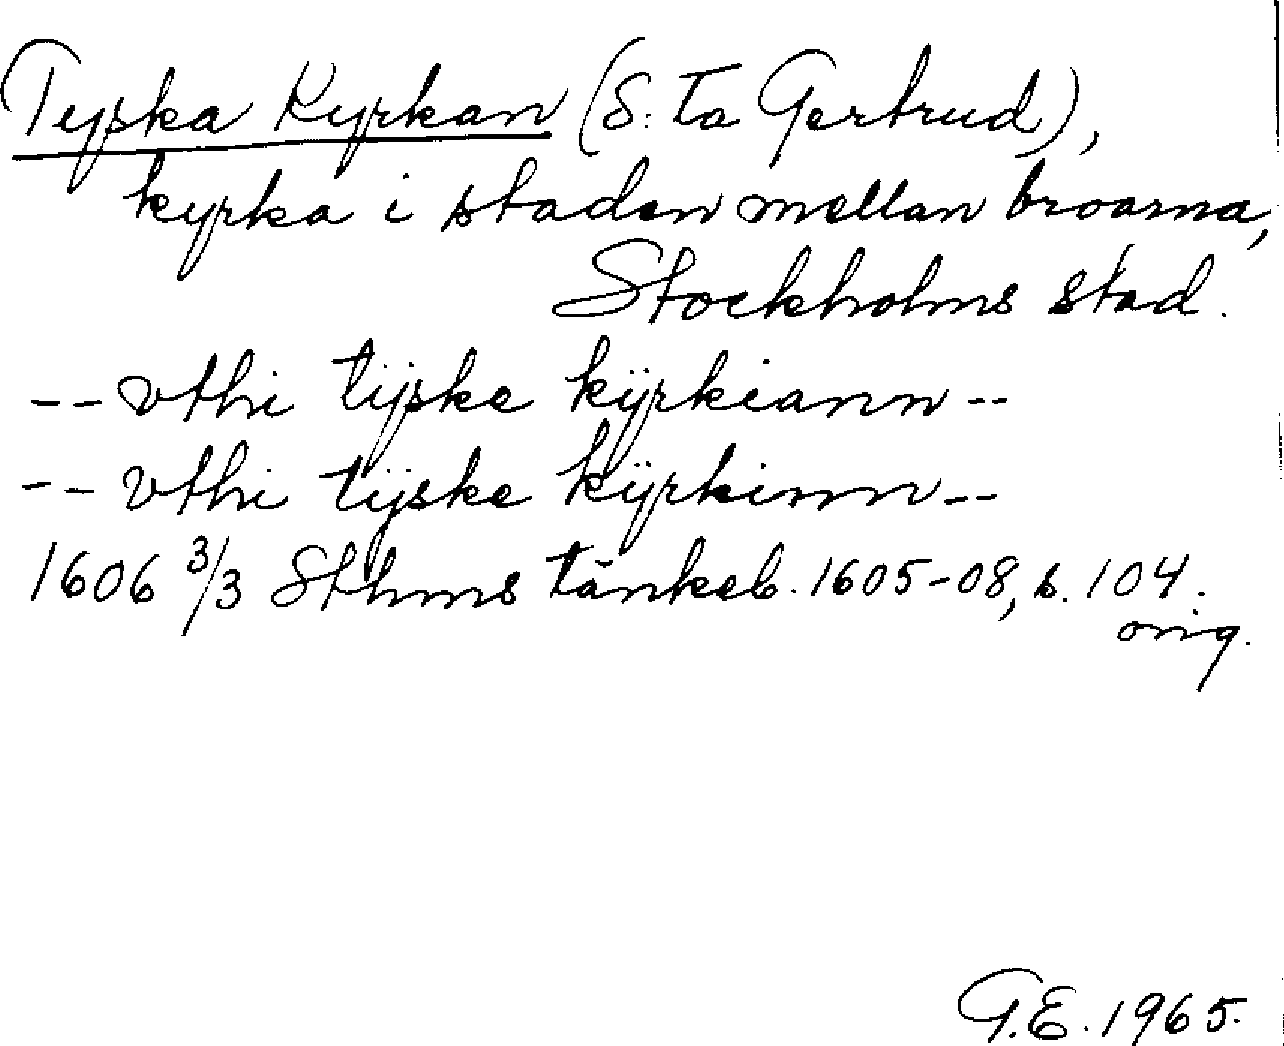 Tyska Kyrkan (S:ta Gertrud),
kyrka i staden mellan broarna,
Stockholms stad.
-- vthi tÿske kÿrkiann --
-- vthi tÿske kÿrkinn --
1606 3/3 Sthms tänkeb. 1605-08, s. 104.
orig.
G.E. 1965.